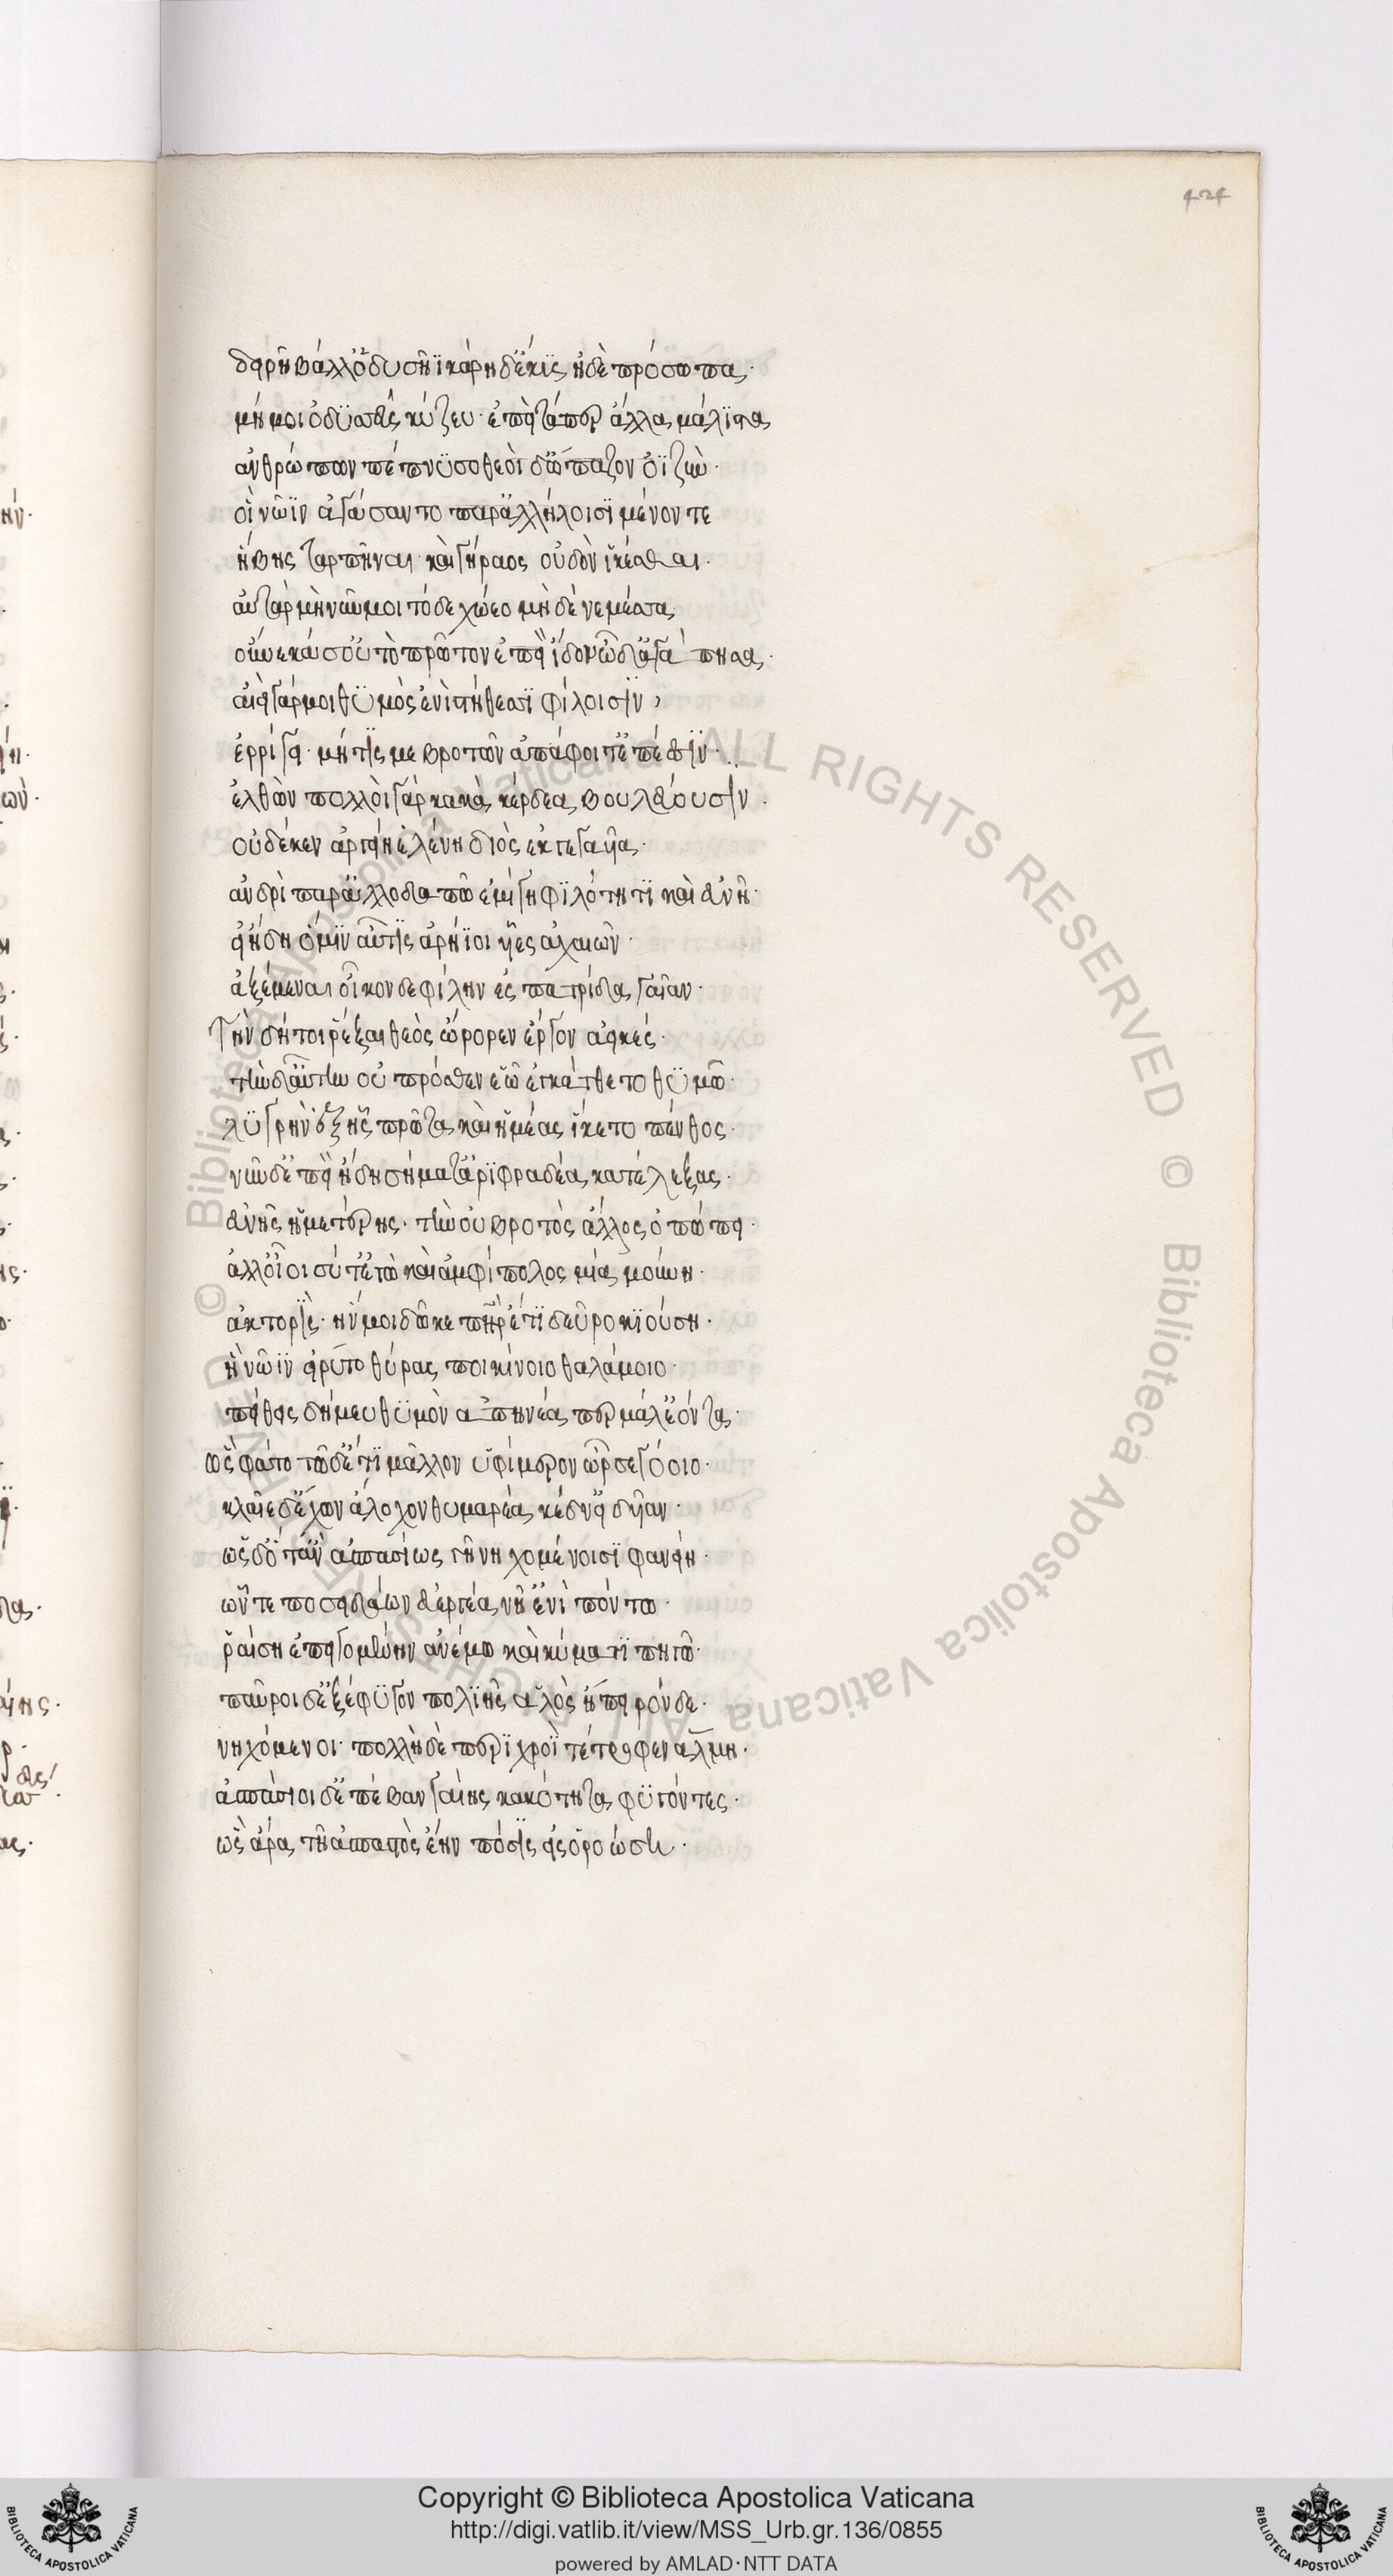 424
δειρῇ βάλλ' ὀδυσῆϊ κάρη δ' ἔκυσ' ἠδὲ προσηύδα·
μή μοι ὀδυσσεῦ σκύζευ· ἐπεὶ τά περ ἄλλα μάλιστα
ἀνθρώπων πέπνυσο θεοὶ δ' ὤπαζον ὀϊζύν·
οἳ νῶϊν ἀγάσαντο παρ' ἀλλήλοισι μένοντε
ἥβης ταρπῆναι καὶ γήραος οὐδὸν ἱκέσθαι·
αὐτὰρ μὴ νῦν μοι τόδε χώεο μηδὲ νεμέσσα
οὕνεκά σ' οὐ τὸ πρῶτον ἐπεὶ ἴδον ὧδ' ἀγάπησα·
αἰεὶ γάρ μοι θυμὸς ἐνὶ στήθεσσι φίλοισιν,
ἐρρίγει· μή τίς με βροτῶν ἀπάφοιτ' ἐπέεσσιν·
ἐλθὼν πολλοὶ γὰρ κακὰ κέρδεα βουλεύουσιν·
οὐδέ κεν ἀργείη ἑλένη διὸς ἐκγεγαυῖα·
ἀνδρὶ παρ' ἀλλοδαπῷ ἐμίγη φιλότητι καὶ εὐνῇ·
εἰ ᾔδη ὅ μιν αὖτις ἀρήϊοι υἷες ἀχαιῶν·
ἀξέμεναι οἶκόνδε φίλην ἐς πατρίδα γαῖαν·
τὴν δή τοι ῥέξαι θεὸς ὤρορεν ἔργον ἀεικές·
τὴν δ' αὐτὴν οὐ πρόσθεν ἑῷ ἐγκάτθετο θυμῷ·
λυγρὴν ἐξ ἧς πρῶτα καὶ ἡμέας ἵκετο πένθος·
νῦν δ' ἐπεὶ ἤδη σήματ' ἀριφραδέα κατέλεξας·
εὐνῆς ἡμετέρης· τὴν οὐ βροτὸς ἄλλος ὀπώπει·
ἀλλ' οἶοι σύ τ' ἐγὼ καὶ ἀμφίπολος μία μούνη·
ἀκτορίς· ἥν μοι δῶκε πατὴρ ἔτι δεῦρο κιούσῃ·
ἣ νῶϊν εἴρυτο θύρας πυκινοῦ θαλάμοιο·
πείθεις δή μευ θυμὸν ἀπηνέα περ μάλ' ἐόντα·
ὣς φάτο τῷ δ' ἔτι μᾶλλον ὑφ' ἵμερον ὦρσε γόοιο·
κλαῖε δ' ἔχων ἄλοχον θυμαρέα κέδν' εἰδυῖαν·
ὡς δ' ὅτ' ἂν ἀσπασίως γῆ νηχομένοισι φανείη·
ὧν τε ποσειδάων εὐεργέα νῆ' ἐνὶ πόντῳ·
ῥαίσῃ ἐπειγομένην ἀνέμῳ καὶ κύματι πηγῷ·
παῦροι δ' ἐξέφυγον πολιῆς ἁλὸς ἤπειρόνδε·
νηχόμενοι· πολλὴ δὲ περὶ χροῒ τέτροφεν ἅλμη·
ἀσπάσιοι δ' ἐπέβαν γαίης κακότητα φυγόντες·
ὣς ἄρα τῇ ἀσπαστὸς ἔην πόσις εἰσοροώσῃ·
© Biblioteca Apostolica Vaticana ALL RIGHTS RESERVED © Biblioteca Apostolica Vaticana ALL RIGHTS RESERVED
BIBLIOTECA APOSTOLICA VATICANA
Copyright © Biblioteca Apostolica Vaticana
http://digi.vatlib.it/view/MSS_Urb.gr.136/0855
powered by AMLAD·NTT DATA
BIBLIOTECA APOSTOLICA VATICANA